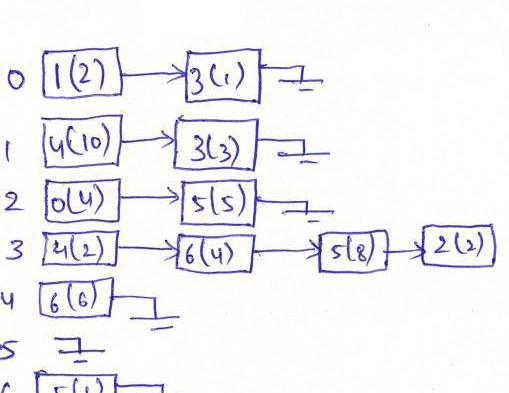 0 1(2) 3(1)
1 4(10) 3(3)
2 0(4) 5(5)
3 4(2) 6(4) 5(8) 2(2)
4 6(6)
5
6 5(1)